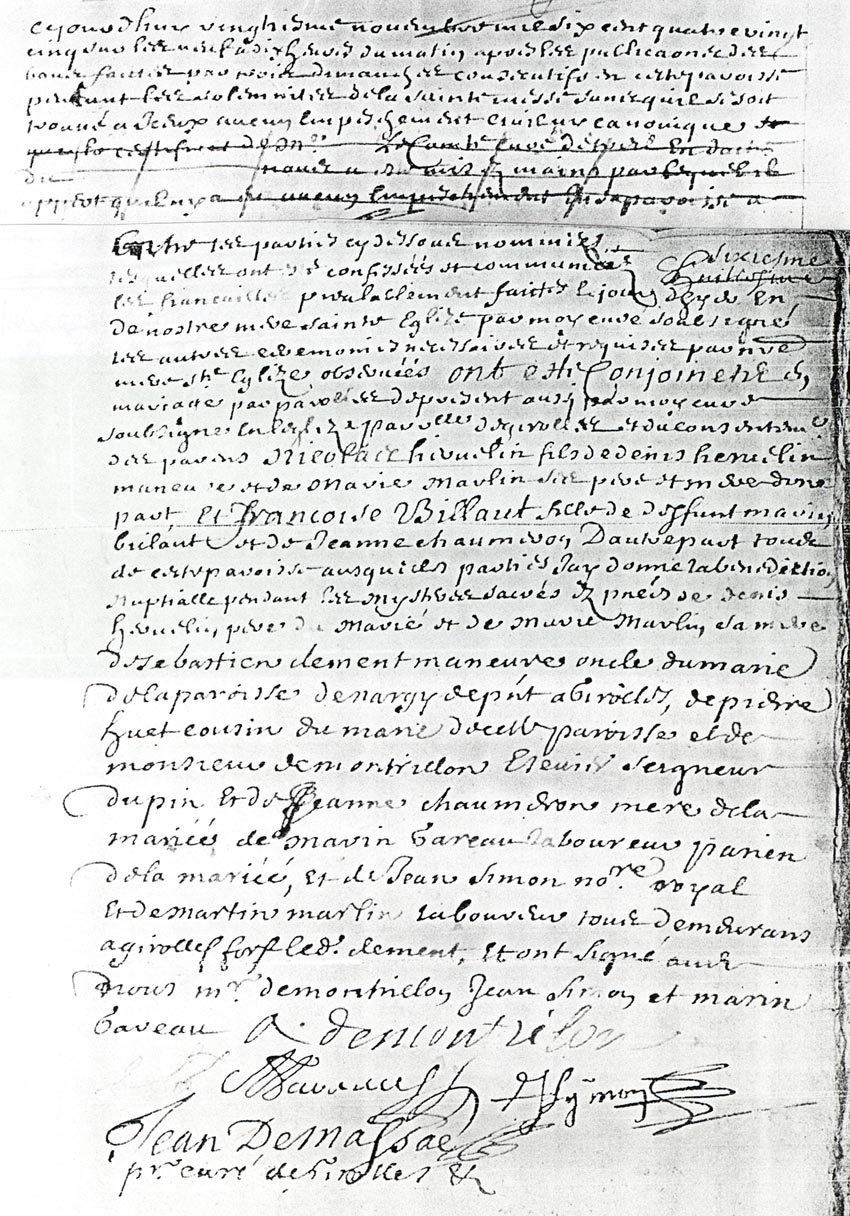 ce jourdhuy vinghiesme novembre mil six cent quatre vingt
cinq sur les neuf à dix heures du matin apres les publicaones des
bans faittes par trois dimanches consecutifs en cette paroisse
pendant les solemnitees de la sainte messe sans quil se soit
trouvé a iceux aucun empeschement civil ou canonique et
certificat de Mr curé
mains par lequel il
appert quil ny a eu aucun Empeschement
Entre les parties cy dessous nommées
lesquelles ont esté confessées et communiées sixiesme
les fiancailles prealablement faittes le jour En
de nostre mere sainte Eglize par moy curé soubsigné
les autres ceremonies necessaires et requises par nre
mere ste Eglize observées ont esté Conjoincts En
mariage par parolles de present aussy par moy curé
soubsigné En leglize paroelle de girolles et du consentemt
des parens Nicolas hevuelin fils de denis hevuelin
maneuvre et de Marie Marlin ses pere et mere dune
part, Et francoise Billaut fille de deffunt marin
bilaut et de Jeanne chaumeron Dautre part tous
de cette paroisse ausquels parties Jay donné la benediction
Nuptialle pendant les mysteres sacrés Ez pnces de denis
hevuelin pere du Marié et de Marie Marlin sa mere
de sebastien clement maneuvre oncle du marié
de la paroisse de nargy de pnt a Girolles, de pierre
huet cousin du marié de cette paroisse et de
monsieur demontrillon Escuier seigneur
du pin Et de Jeanne chaumeron mere de la
mariée de Marin Gareau laboureur parien
de la mariée, Et de Jean Simon nore royal
Et de Martin marlin laboureur tous demeurans
a girolles fors led. clement, Et ont signé avec
nous mr. demontrillon Jean Simon et marin
Gareau demontrillon
M Gareau Symon
Jean Demassac
pr. curé de Girolles &